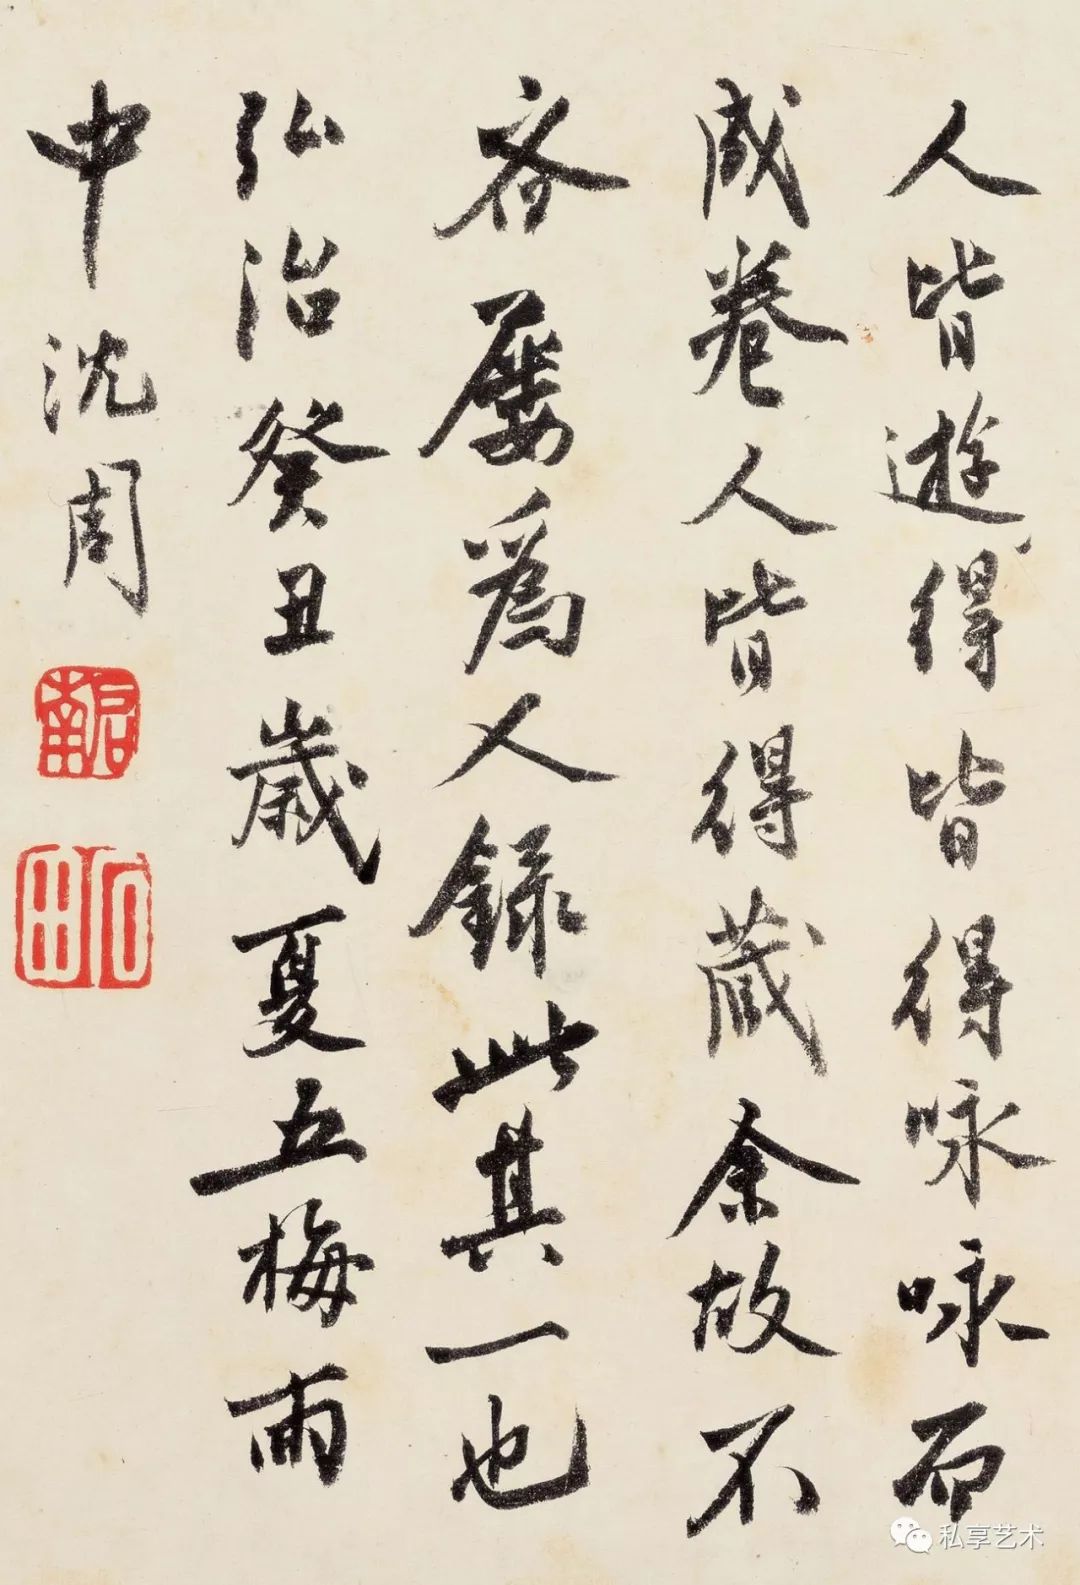 人皆遊得皆得咏咏而
成卷人皆得藏余故不
吝屡爲人録此其一也
弘治癸丑歳夏五梅雨
中沈周
啟南
石田
私享艺术